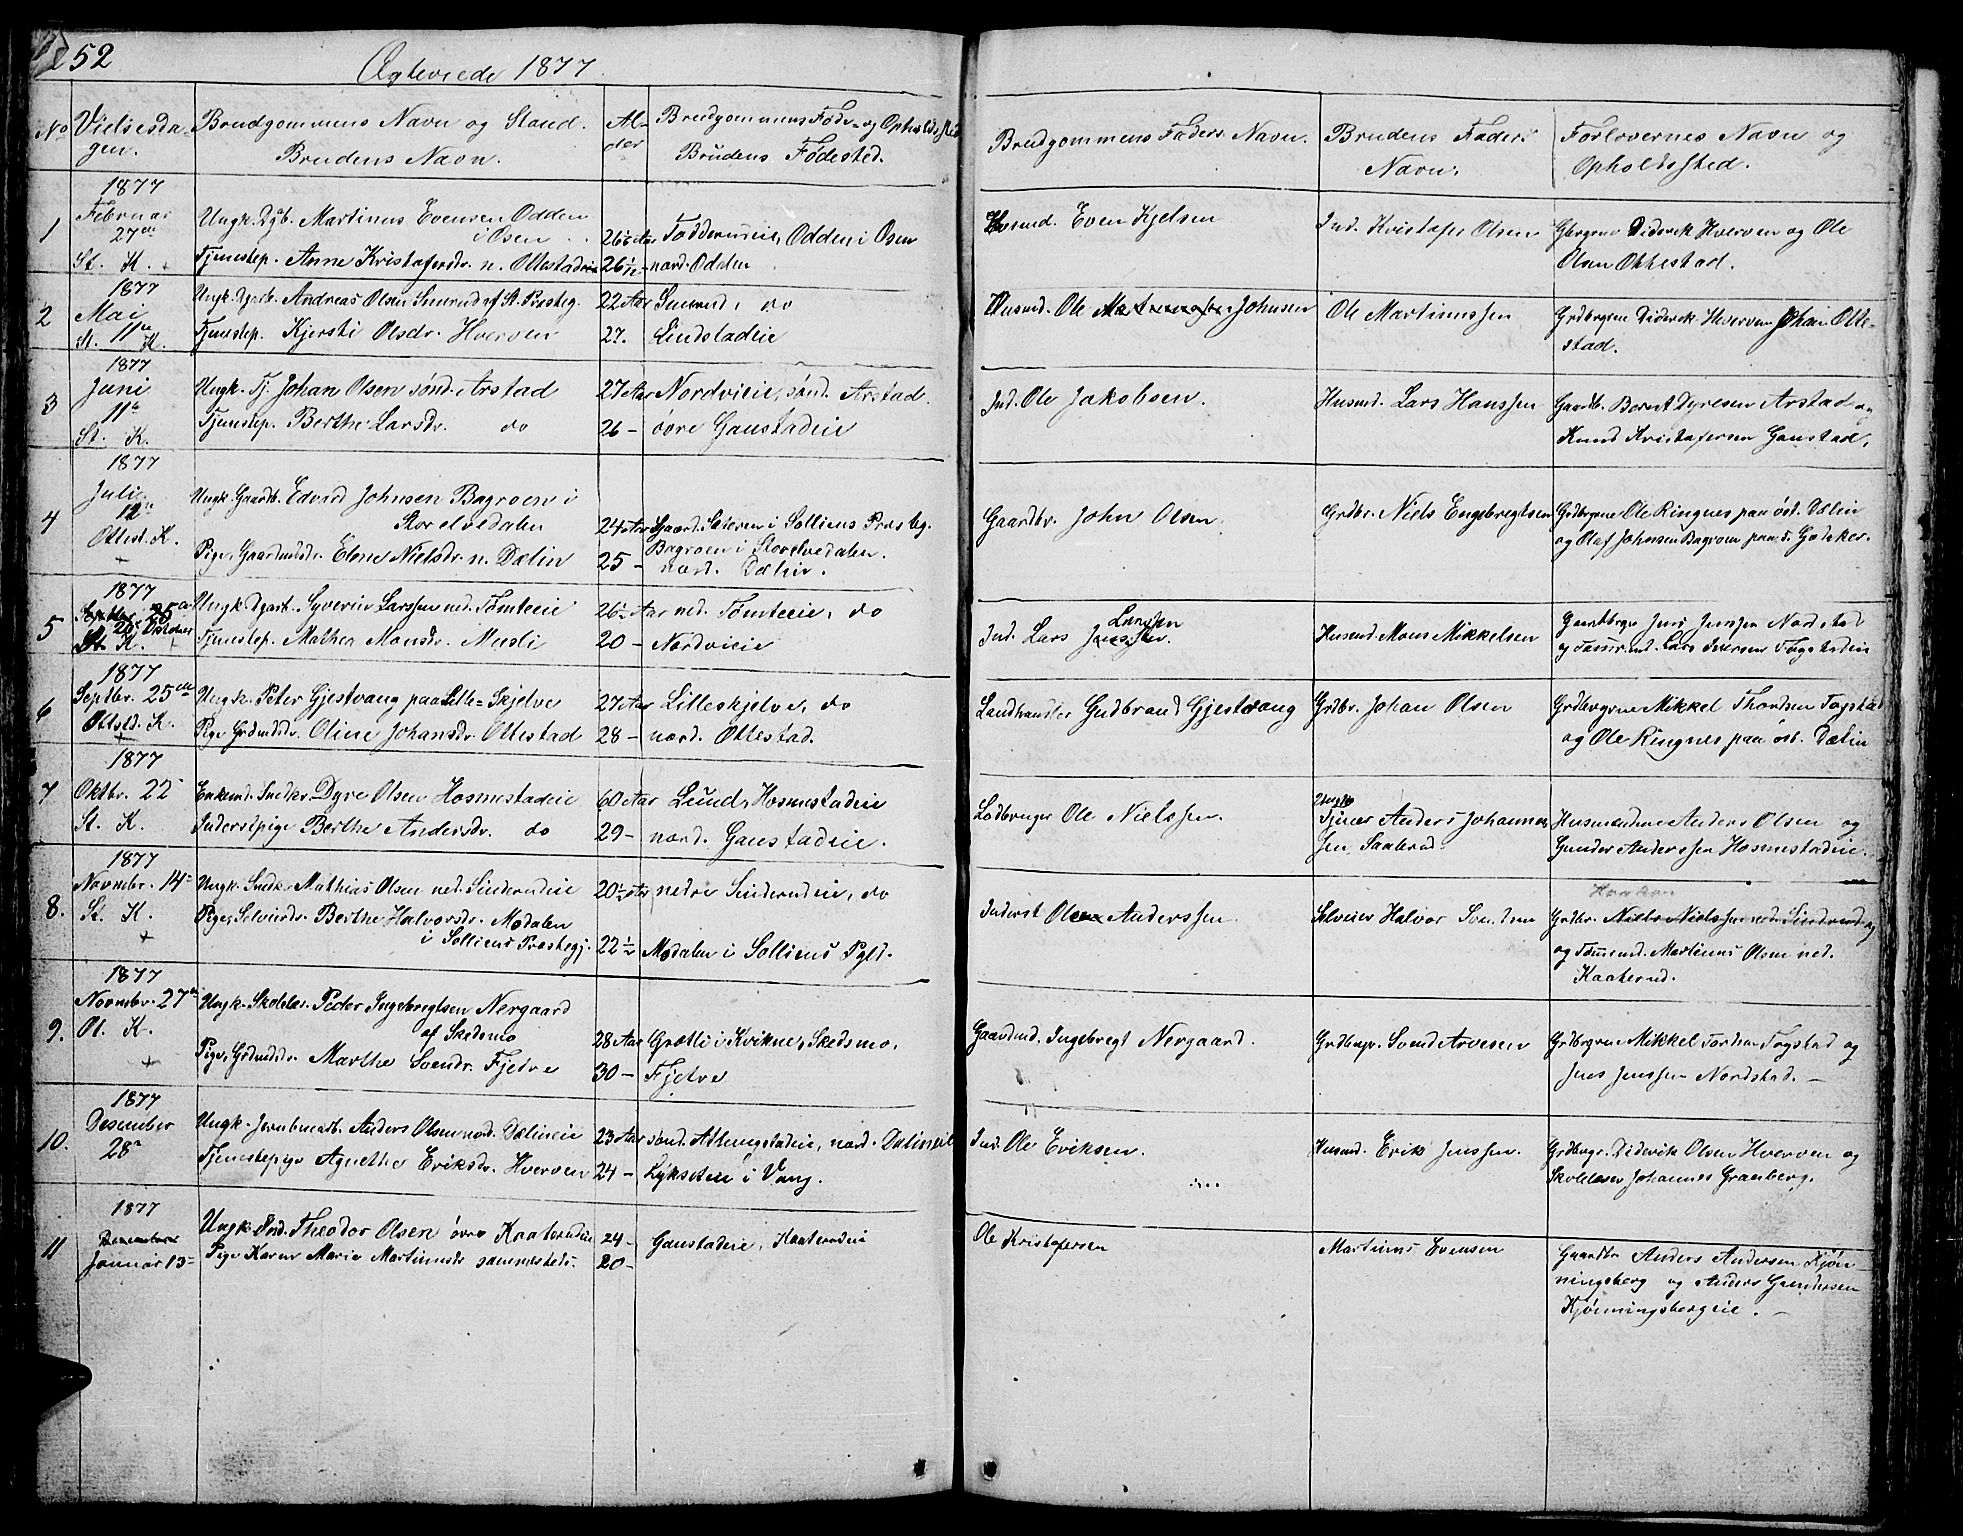 252
Ægteviede 1877.
No
Vielsesdagen.
Brudgommens Navn og Stand.
Brudens Navn.
Alder
Brudgommens Føde- og Opholdssted
Brudens Fødested.
Brudgommens Faders Navn.
Brudens Faders Navn.
Forlovernes Navn og Opholdssted.
1
1877
Februar
27de
St. K.
Ungk. Dgb. Martinus Evensen Odden
i Osen
Tjenstep. Anne Kristafersdr. n. Ottestadeie
26½ Aar
26 1/12 -
Odden i Osen
nord. Odalen
Husmd. Even Kjelsen
Ind. Kristafer Olsen
Gbrgrne Diderik Hverven og Ole
Olsen Ottestad.
2
1877
Mai
11te
St. K.
Ungk. Dgarb. Andreas Olsen Smerud af St. Præsteg.
Tjenstep. Kjersti Olsdr. Hverven
22 Aar
27.
Smerud, do
Lindstadeie
Husmd. Ole Johnsen
Ole Martinussen
Grdbrgrne Diderik Hverven Johan Otte-
stad.
3
1877
Juni
11te
St. K.
Ungk. Tj. Johan Olsen sønd. Arstad
Tjenstep. Berthe Larsdr. do
27 Aar
26 -
Nordvieie, sønd. Arstad.
øvre Gaustadeie
Ind. Ole Jakobsen.
Husmd. Lars Hanssen
Gaardb. Bernt Dyresen Arstad og
Knud Kristafersen Gaustad.
4
1877
Juli
12te
Ottest. K.
Ungk. Gaardb. Edvard Johnsen Bagroen i
Storelvedalen
Pige, Gaardmdsdr. Elene Nielsdr. n. Dælin
24 Aar
25 -
Gaard. i Solliens Præsteg.
Bagroen i Storelvedalen.
nord. Dælin.
Gaardbr. John Olsen.
Grdbr. Niels Engebregtsen
Grdbrgrne Ole Ringnes paa øst. Dælin
og Olaf Johnsen Bagroen paa s. Godaker.
5
1877
Septbr. 25de
20 Oktober
St. K.
Ungk. Dgarb. Syverin Larssen ned. Tomteeie
Tjenstep. Mathea Monsdr. Musli
26½ Aar
20 -
ned. Tomteeie, do
Nordvieie
Ind. Lars Larssen
Husmd. Mons Mikkelsen
Gaardbrgr. Jens Jenssen Nordstad
og Tømrmd. Lars Iversen Fogstadeie
6
1877
Septbr. 25de
Ottsd. K.
Ungk. Peter Gjestvang paa Lille-Skjelve
Pige Grdmdsdr. Oline Johansdr. Ottestad
27 Aar
28 -
Lilleskjelve, do
nord. Ottestad.
Landhandler Gudbrand Gjestvang
Grdbr. Johan Olsen
Grdbrgrne Mikkel Thordsen Fogstad
og Ole Ringnes paa øst. Dælin
7
1877
Oktbr. 22
St. K.
Enkemd. Snedkr. Dyre Olsen Hosmestadeie
Inderstpige Berthe Andersdr. do
60 Aar
29 -
Lund, Hosmestadeie
nord. Gaustadeie.
Lodbruger Ole Nielssen.
Tjener Anders Johannes-
sen Saalerud.
Husmændene Anders Olsen og
Gunder Anderssen Hosmestadeie.
8.
1877
Novmbr. 14
St. K.
Ungk. Snedk. Mathias Olsen ned. Sinderudeie
Pige, Selveierdr. Berthe Halvorsdr. Modalen
i Solliens Præstegj.
20½ Aar
22½
nedre Sinderudeie, do
Modalen i Solliens Pgld.
Inderst Ole Anderssen
Selveier Halvor Svendsen
Grdbr. Niels Nielssen ned. Sinderud og
og Tømmermd. Martinus Olsen ned.
Kaaterud.
9.
1877
Novmbr. 27de
Ot. K.
Ungk. Skolelær. Peder Ingebregtsen Nergaard
af Skedsmo
Pige, Grdmdsdr. Marthe Svendsdr. Fjetre
28 Aar
30 -
Grøtli i Kvikne, Skedsmo.
Fjetre
Gaardmd. Ingebregt Nergaard.
Grdbrgr. Svend Arvesen
Grdbrgrne Mikkel Tordsen Fogstad og
Jens Jenssen Nordstad. -
10.
1877
Desember
28de
Ungk. Jernbnearb. Anders Olsen nord. Dælineie
Tjenestepige Agnethe Eriksdr. Hverven
23 Aar
24 -
sønd. Attengstadeie, nord. Dælineie
Lykseteie i Vang.
Ind. Ole Eriksen.
Husmd. Erik Jenssen.
Grdbrgr. Diderik Olsen Hverven og
Skolelærer Johannes Granberg.
11
1877
Desember
Januar 13
Ungk. Ind. Theodor Olsen øvre Kaaterudeie
Pige Karen Marie Martinusdr. sammesteds.
24 -
20 -
Gaustadeie, Kaaterudeie
Ole Kristafersen
Martinus Evensen
Gaardbr. Anders Andersen Kjøn-
ningsberg og Anders Gundersen
Kjønningsbergeie. -